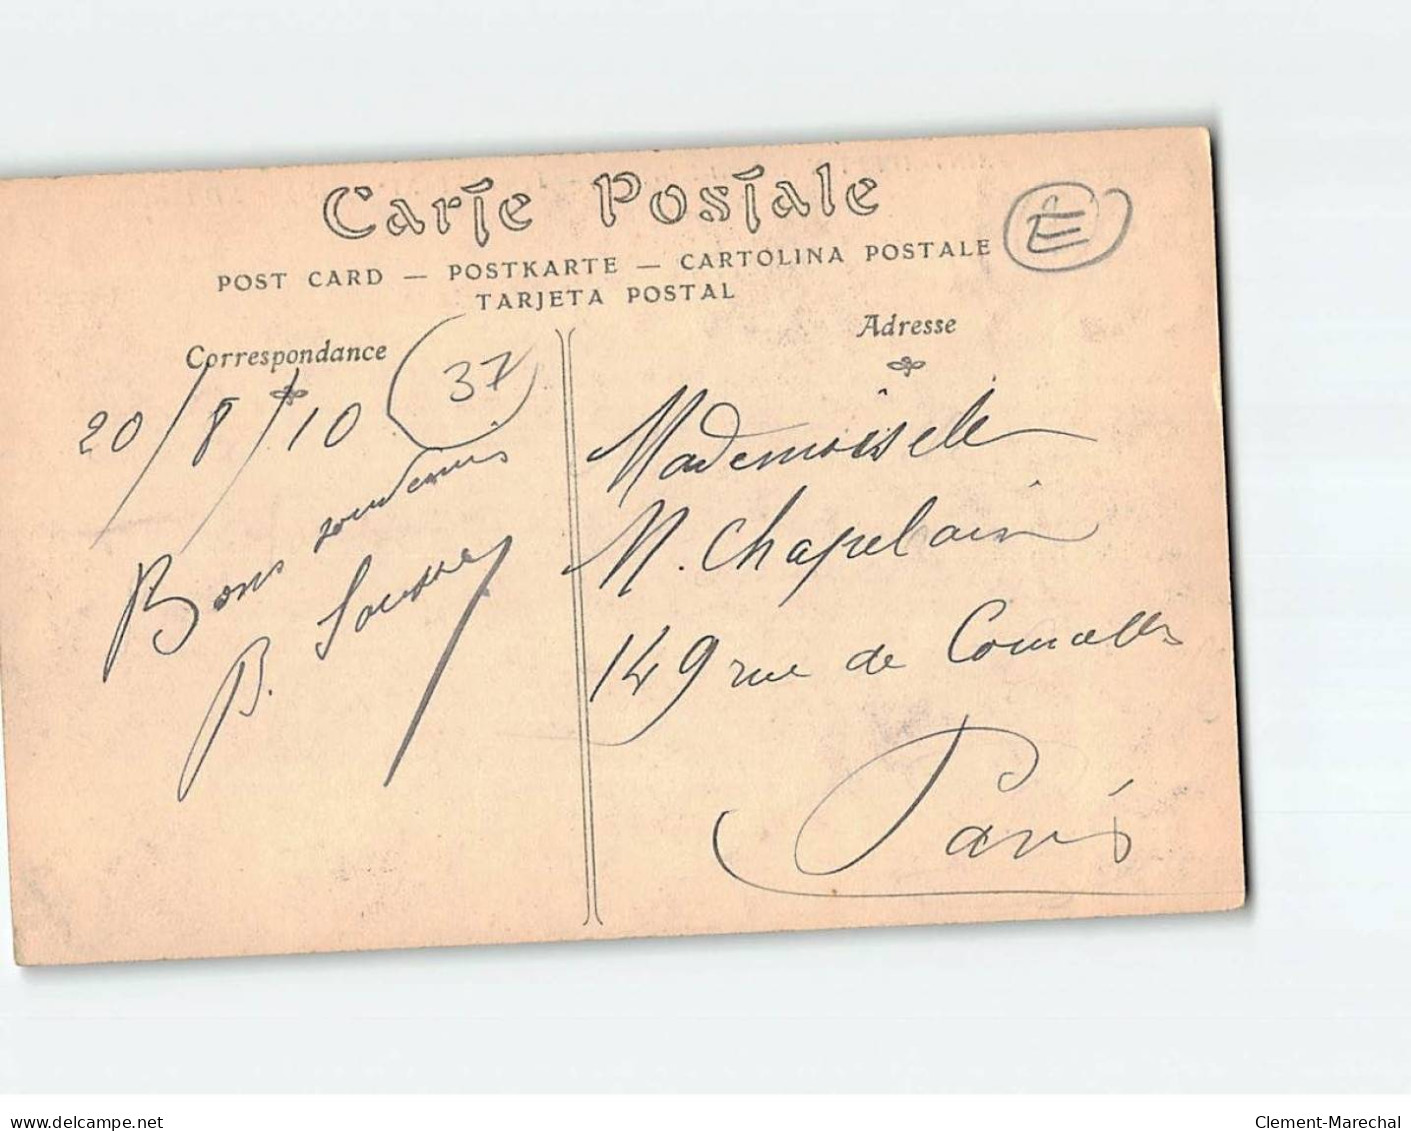 Carte Postale
POST CARD — POSTKARTE — CARTOLINA POSTALE
TARJETA POSTAL
E
Correspondance
Adresse
37
20/8/10
Bons souvenirs
B.
Mademoiselle
M. Chapelain
149 rue de Courcelles
Paris
delcampe.net
Clement-Marechal